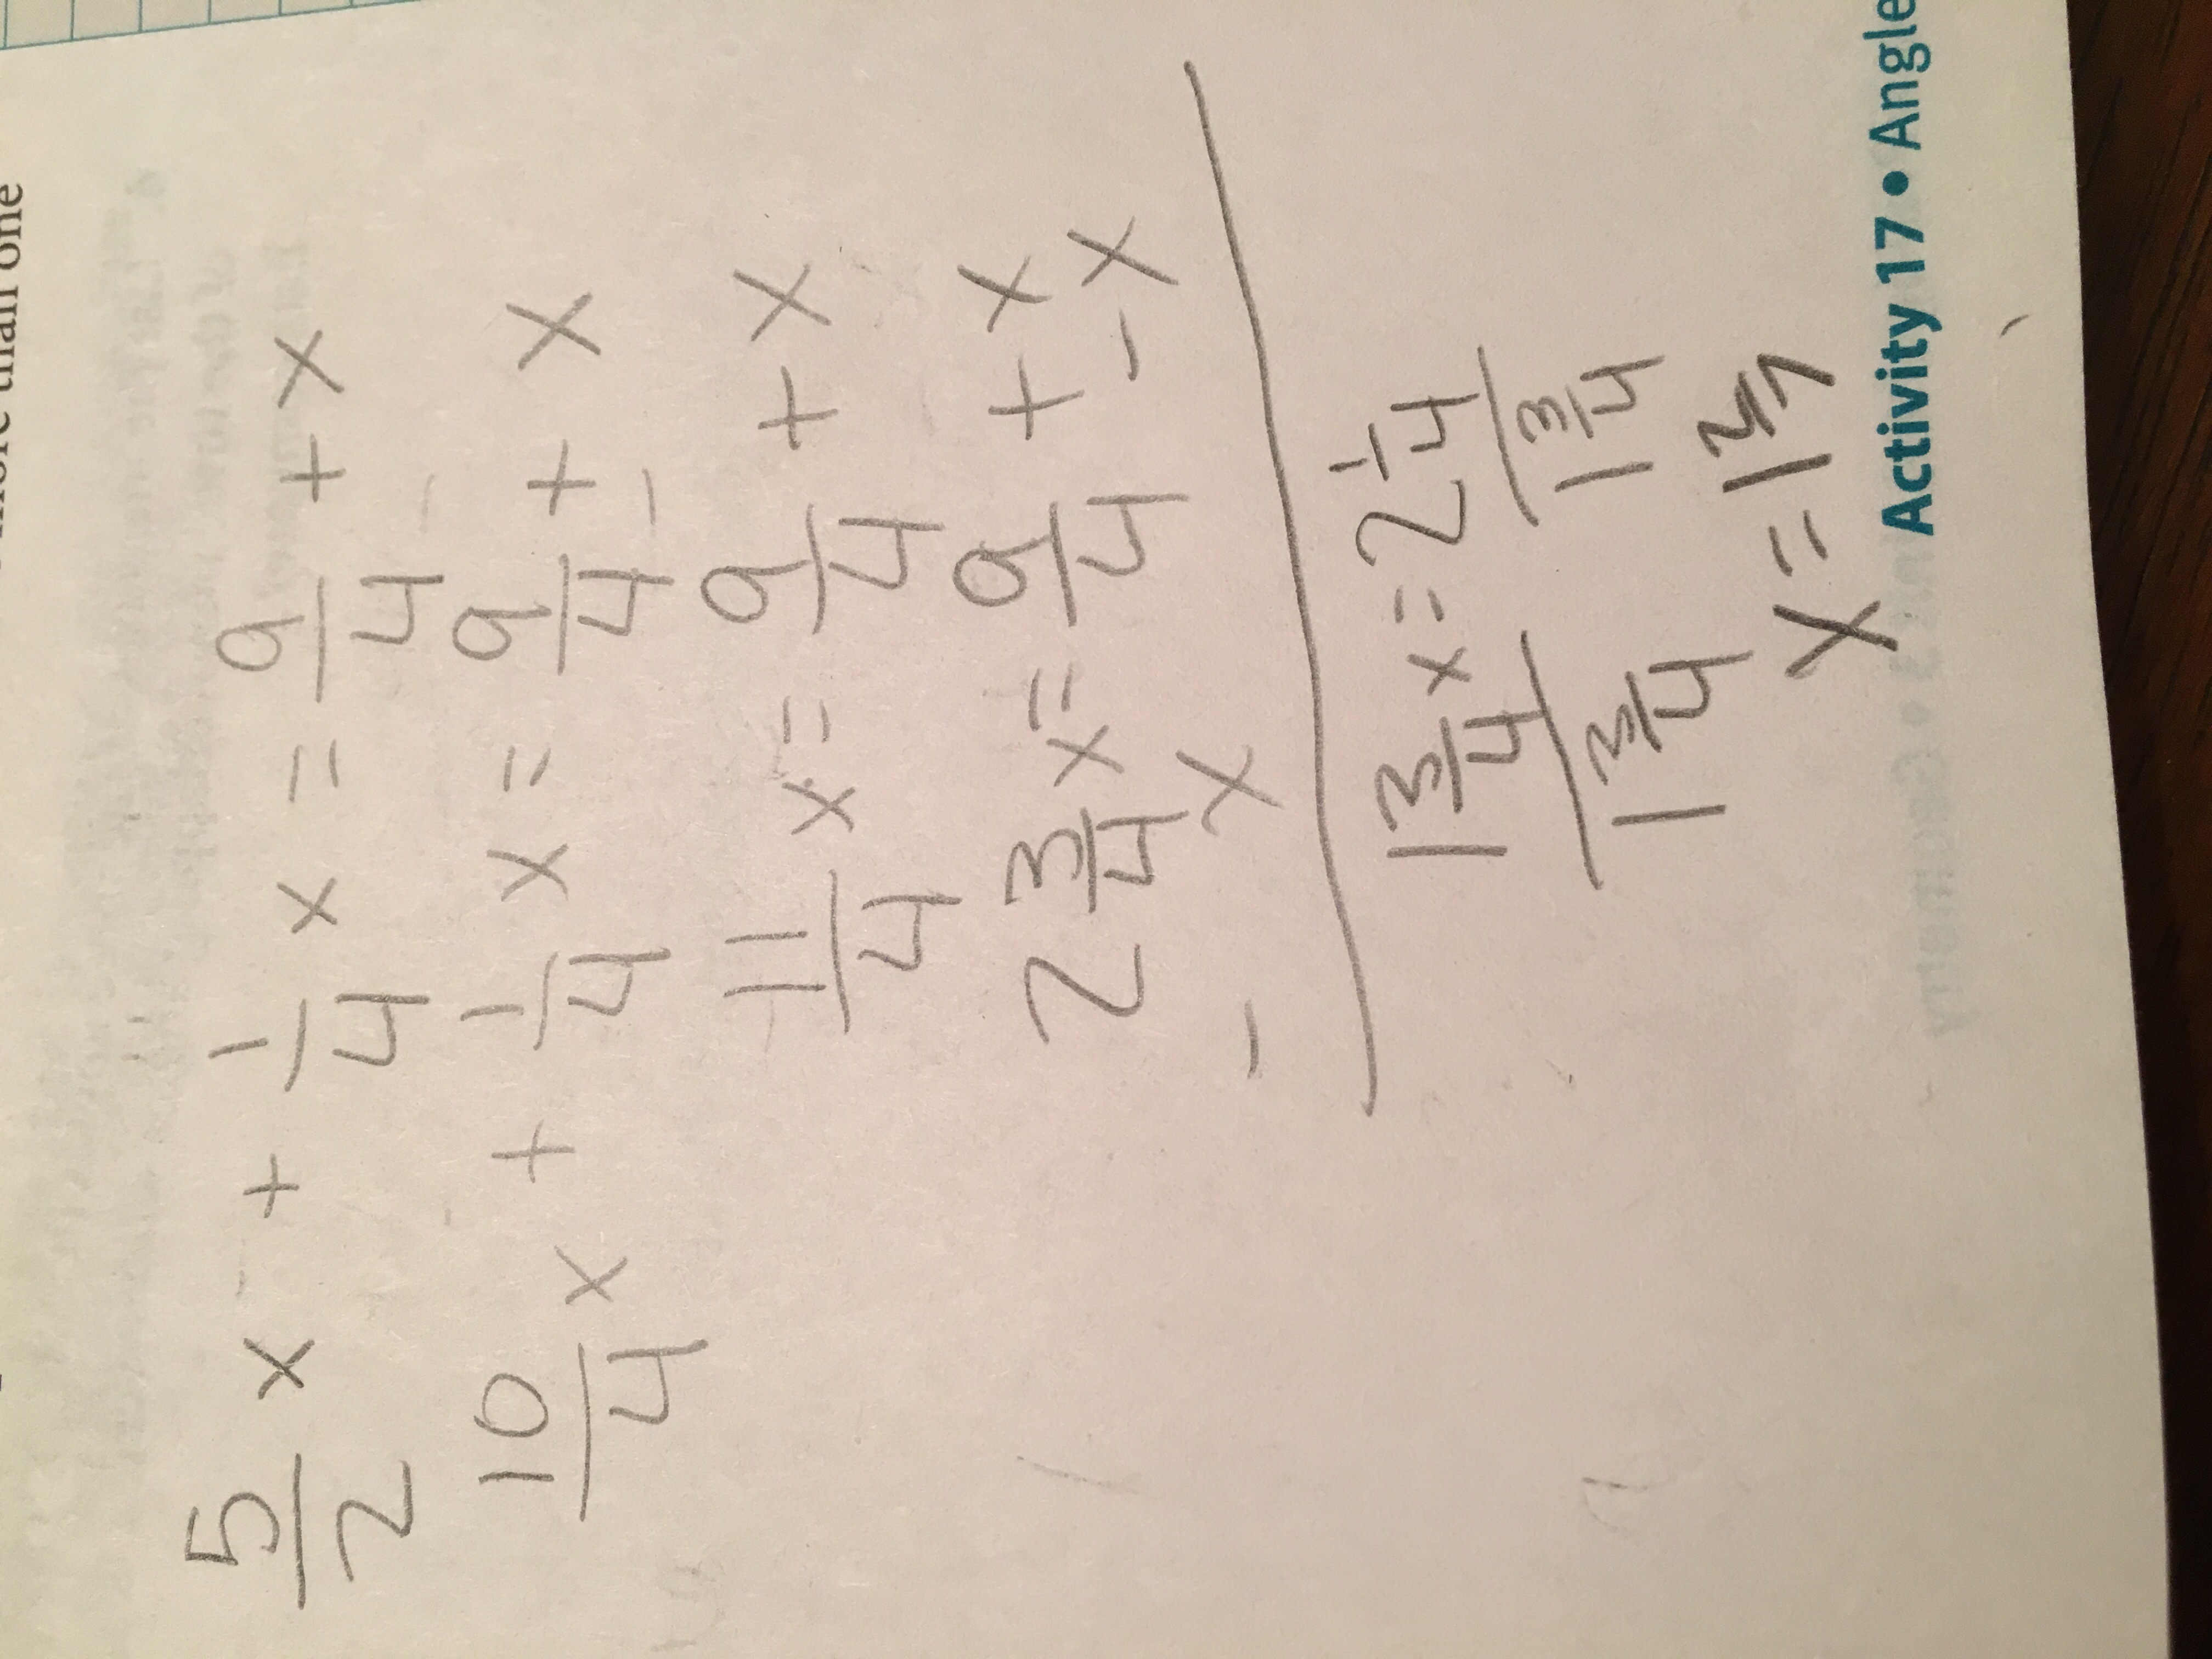 more than one
5/2 x + 1/4 x = 9/4 + x
10/4 x + 1/4 x = 9/4 + x
11/4 x = 9/4 + x
2 3/4 x = 9/4 + x
- x - x
1 3/4 x = 2 1/4
1 3/4 1 3/4
x = 1 2/7
Activity 17 • Angle